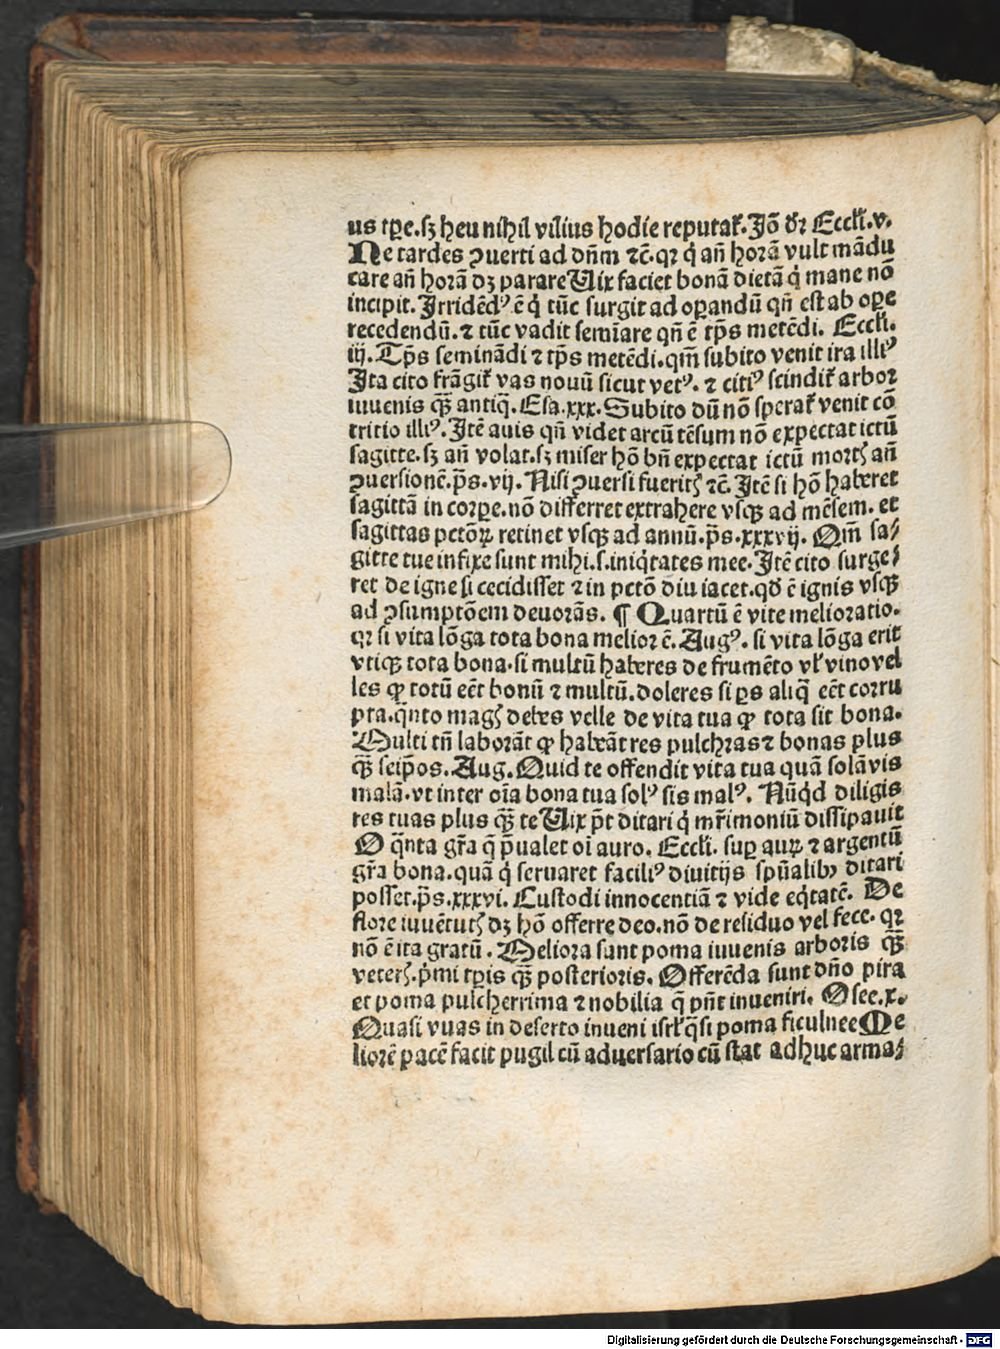 us tꝑe.sꝫ heu nihil vilius hodie reputat᷑.Jõ dr̄ Eccłi.v.
Ne tardes ꝯuerti ad dñm ⁊c̃.qꝛ q̇ añ horã vult mãdu
care añ horã dꝫ parare Uix faciet bonã dietã q̇ mane nõ
incipit.Irridẽdꝰ ẽ q̇ tũc surgit ad oꝑandũ qñ est ab oꝑe
recedendũ.⁊ tũc vadit semĩare qñ ẽ tp̃s metẽdi. Eccłi.
iij.Tp̃s seminãdi ⁊ tp̃s metẽdi.qm̃ subito venit ira illiꝰ
Ita cito frãgit᷑ vas nouũ sicut vetꝰ. ⁊ citiꝰ scindit᷑ arboꝛ
iuuenis qꝫ̃ antiq̃.Esa.xxx.Subito dũ nõ sperat᷑ venit cõ
tritio illiꝰ.Itẽ auis qñ videt arcũ tẽsum nõ expectat ictũ
sagitte.sꝫ añ volat.sꝫ miser hõ bñ expectat ictũ moꝛtꝭ añ
ꝯuersionẽ.p̃s.vij.Nisi ꝯuersi fueritꝭ ⁊c̃.Itẽ si hõ haberet
sagittã in coꝛꝑe.nõ differret extrahere vsqꝫ ad mẽsem. et
sagittas pctõꝝ retinet vsqꝫ ad annũ.p̃s.xxxvij. Qm̃ sa⸗
gitte tue infixe sunt mihi.s.iniq̇tates mee.Itẽ cito surge⸗
ret de igne si cecidisset ⁊ in pctõ diu iacet.qđ ẽ ignis vsqꝫ
ad ꝯsumptõem deuoꝛãs. ¶ Quartũ ẽ vite melioratio.
qꝛ si vita lõga tota bona melioꝛ ẽ.Augꝰ. si vita lõga erit
vtiqꝫ tota bona.si multũ haberes de frumẽto vł vino vel
les ꝙ totũ eẽt bonũ ⁊ multũ.doleres si ꝑs aliq̃ eẽt coꝛru
pta.q̃nto magꝭ debes velle de vita tua ꝙ tota sit bona.
Multi tñ laboꝛãt ꝙ habeãt res pulchꝛas ⁊ bonas plus
qꝫ̃ seip̃os.Aug.Quid te offendit vita tua quã solã vis
malã.vt inter oĩa bona tua solꝰ sis malꝰ. Nũq̇d diligis
res tuas plus qꝫ̃ te Uix p̃t ditari q̇ mr̃imoniũ dissipauit
O q̃nta gr̃a q̃ p̃ualet oĩ auro. Eccłi. suꝑ auꝝ ⁊ argentũ
gr̃a bona.quã q̇ seruaret faciliꝰ diuitijs spũalibꝫ ditari
posset.p̃s.xxxvi. Custodi innocentiã ⁊ vide eq̇tatẽ. De
floꝛe iuuẽtutꝭ dꝫ hõ offerre deo.nõ de residuo vel fece. qꝛ
nõ ẽ ita gratũ. Melioꝛa sunt poma iuuenis arboꝛis qꝫ̃
veterꝭ.ṗmi tꝑis qꝫ̃ posterioꝛis. Offerẽda sunt dño pira
et poma pulcherrima ⁊ nobilia q̃ pñt inueniri. Osee.x.
Quasi vuas in deserto inueni isrł q̃si poma ficulnee Me
lioꝛẽ pacẽ facit pugil cũ aduersario cũ stat adhuc arma⸗
Digitalisierung gefördert durch die Deutsche Forschungsgemeinschaft - DFG